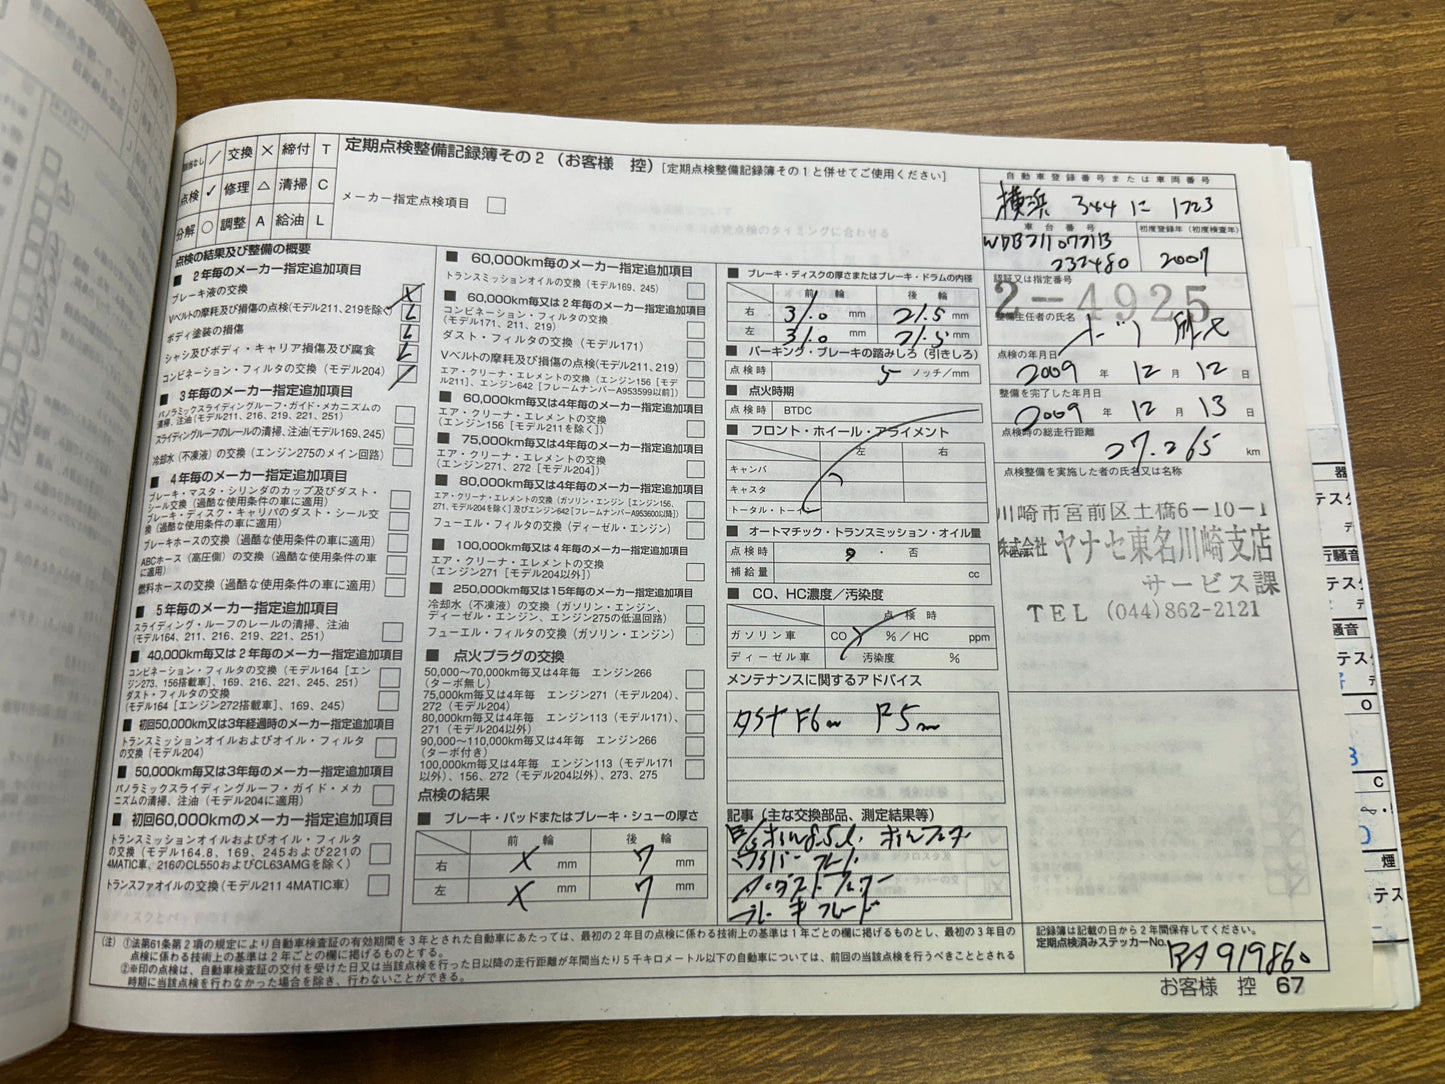 該当なし / 交換 × 締付 T
点検 ✓ 修理 △ 清掃 C
分解 ○ 調整 A 給油 L
定期点検整備記録簿その2(お客様 控)[定期点検整備記録簿その1と併せてご使用ください]
メーカー指定点検項目
点検の結果及び整備の概要
■ 2年毎のメーカー指定追加項目
ブレーキ液の交換
Vベルトの摩耗及び損傷の点検(モデル211、219を除く)
ボディ塗装の損傷
シャシ及びボディ・キャリア損傷及び腐食
コンビネーション・フィルタの交換(モデル204)
■ 3年毎のメーカー指定追加項目
パノラミックスライディングルーフ・ガイド・メカニズムの
清掃、注油(モデル211、216、219、221、251)
スライディングルーフのレールの清掃、注油(モデル169、245)
冷却水(不凍液)の交換(エンジン275のメイン回路)
■ 4年毎のメーカー指定追加項目
ブレーキ・マスタ・シリンダのカップ及びダスト・
シール交換(過酷な使用条件の車に適用)
ブレーキ・ディスク・キャリパのダスト・シール交
換(過酷な使用条件の車に適用)
ブレーキホースの交換(過酷な使用条件の車に適用)
ABCホース(高圧側)の交換(過酷な使用条件の車
に適用)
燃料ホースの交換(過酷な使用条件の車に適用)
■ 5年毎のメーカー指定追加項目
スライディング・ルーフのレールの清掃、注油
(モデル164、211、216、219、221、251)
■ 40,000km毎又は2年毎のメーカー指定追加項目
コンビネーション・フィルタの交換(モデル164[エン
ジン273、156搭載車]、169、216、221、245、251)
ダスト・フィルタの交換
(モデル164[エンジン272搭載車]、169、245)
■ 初回50,000km又は3年経過時のメーカー指定追加項目
トランスミッションオイルおよびオイル・フィルタ
の交換(モデル204)
■ 50,000km毎又は3年毎のメーカー指定追加項目
パノラミックスライディングルーフ・ガイド・メカ
ニズムの清掃、注油(モデル204に適用)
■ 初回60,000kmのメーカー指定追加項目
トランスミッションオイルおよびオイル・フィルタ
の交換(モデル164.8、169、245および221の
4MATIC車、216のCL550およびCL63AMGを除く)
トランスファオイルの交換(モデル211 4MATIC車)
■ 60,000km毎のメーカー指定追加項目
トランスミッションオイルの交換(モデル169、245)
■ 60,000km毎又は2年毎のメーカー指定追加項目
コンビネーション・フィルタの交換
(モデル171、211、219)
ダスト・フィルタの交換(モデル171)
Vベルトの摩耗及び損傷の点検(モデル211、219)
エア・クリーナ・エレメントの交換(エンジン156[モデ
ル211]、エンジン642[フレームナンバーA953599以前])
■ 60,000km毎又は4年毎のメーカー指定追加項目
エア・クリーナ・エレメントの交換
(エンジン156[モデル211を除く])
■ 75,000km毎又は4年毎のメーカー指定追加項目
エア・クリーナ・エレメントの交換
(エンジン271、272[モデル204])
■ 80,000km毎又は4年毎のメーカー指定追加項目
エア・クリーナ・エレメントの交換(ガソリン・エンジン[エンジン156、
271、モデル204を除く]及びエンジン642[フレームナンバーA953600以降])
フューエル・フィルタの交換(ディーゼル・エンジン)
■ 100,000km毎又は4年毎のメーカー指定追加項目
エア・クリーナ・エレメントの交換
(エンジン271[モデル204以外])
■ 250,000km毎又は15年毎のメーカー指定追加項目
冷却水(不凍液)の交換(ガソリン・エンジン、
ディーゼル・エンジン、エンジン275の低温回路)
フューエル・フィルタの交換(ガソリン・エンジン)
■ 点火プラグの交換
50,000〜70,000km毎又は4年毎 エンジン266
(ターボ無し)
75,000km毎又は4年毎 エンジン271(モデル204)、
272(モデル204)
80,000km毎又は4年毎 エンジン113(モデル171)、
271(モデル204以外)
90,000〜110,000km毎又は4年毎 エンジン266
(ターボ付き)
100,000km毎又は4年毎 エンジン113(モデル171
以外)、156、272(モデル204以外)、273、275
点検の結果
■ ブレーキ・パッドまたはブレーキ・シューの厚さ
前 輪 後 輪
右 X mm 7 mm
左 X mm 7 mm
■ ブレーキ・ディスクの厚さまたはブレーキ・ドラムの内径
前 輪 後 輪
右 31.0 mm 21.5 mm
左 31.0 mm 21.5 mm
■ パーキング・ブレーキの踏みしろ(引きしろ)
点検時 5 ノッチ/mm
■ 点火時期
点検時 BTDC
■ フロント・ホイール・アライメント
左 右
キャンバ
キャスタ
トータル・トーイン
■ オートマチック・トランスミッション・オイル量
点検時 ・ 否
補給量 cc
■ CO、HC濃度/汚染度
点 検 時
ガソリン車 CO %/HC ppm
ディーゼル車 汚染度 %
メンテナンスに関するアドバイス
タイヤ F6m R5m
記事(主な交換部品、測定結果等)
ワイパーブレード
ダストフィルター
ブレーキフルード
自動車登録番号または車両番号
横浜 344 に 1723
車台番号
WDB2110772B
232480
初度登録年(初度検査年)
2007
認証又は指定番号
2-4925
整備主任者の氏名
点検の年月日
2009 年 12 月 12 日
整備を完了した年月日
2009 年 12 月 13 日
点検時の総走行距離
27.265 km
点検整備を実施した者の氏名又は名称
川崎市宮前区土橋6-10-1
株式会社 ヤナセ東名川崎支店
サービス課
TEL (044)862-2121
(注)①法第61条第2項の規定により自動車検査証の有効期間を3年とされた自動車にあたっては、最初の2年目の点検に係わる技術上の基準は1年ごとの欄に掲げるものとし、最初の3年目の
点検に係わる技術上の基準は2年ごとの欄に掲げるものとする。
②※印の点検は、自動車検査証の交付を受けた日又は当該点検を行った日以降の走行距離が年間当たり5千キロメートル以下の自動車については、前回の当該点検を行うべきこととされる
時期に当該点検を行わなかった場合を除き、行わないことができる。
記録簿は記載の日から2年間保存してください。
定期点検済みステッカーNo.
919860
お客様 控 67